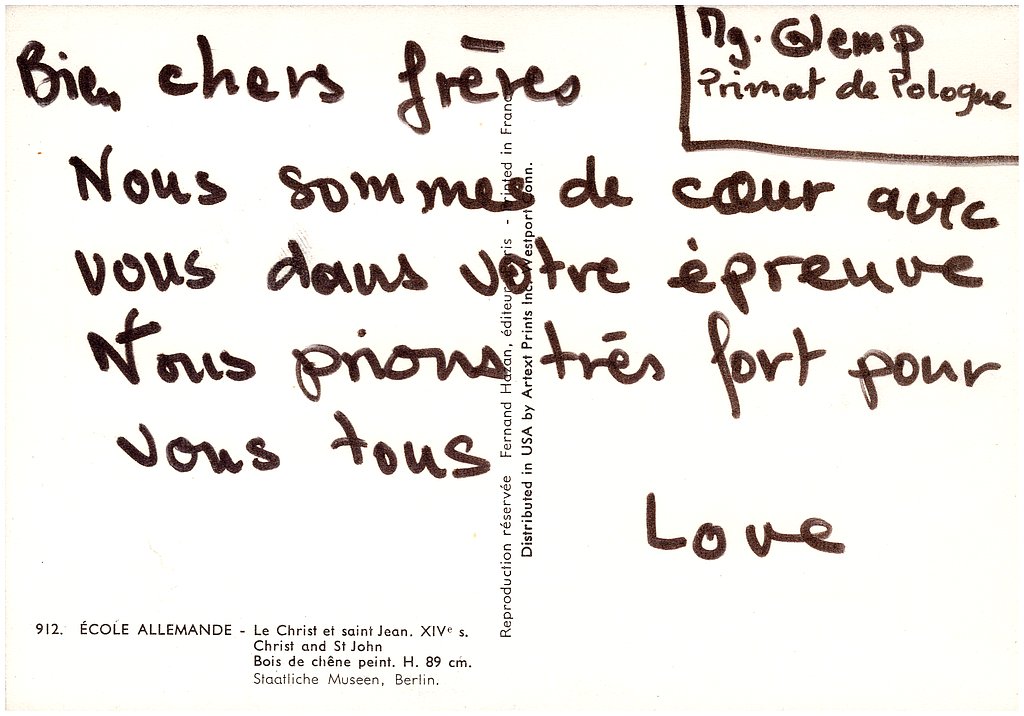 Mg. Glemp
Primat de Pologne
Bien chers frères
Nous sommes de cœur avec
vous dans votre épreuve
Nous prions très fort pour
vous tous
Love
Reproduction réservée Fernand Hazan, éditeur, Paris - Printed in France
Distributed in USA by Artext Prints Inc. Westport Conn.
912. ÉCOLE ALLEMANDE - Le Christ et saint Jean. XIVe s.
Christ and St John
Bois de chêne peint. H. 89 cm.
Staatliche Museen, Berlin.